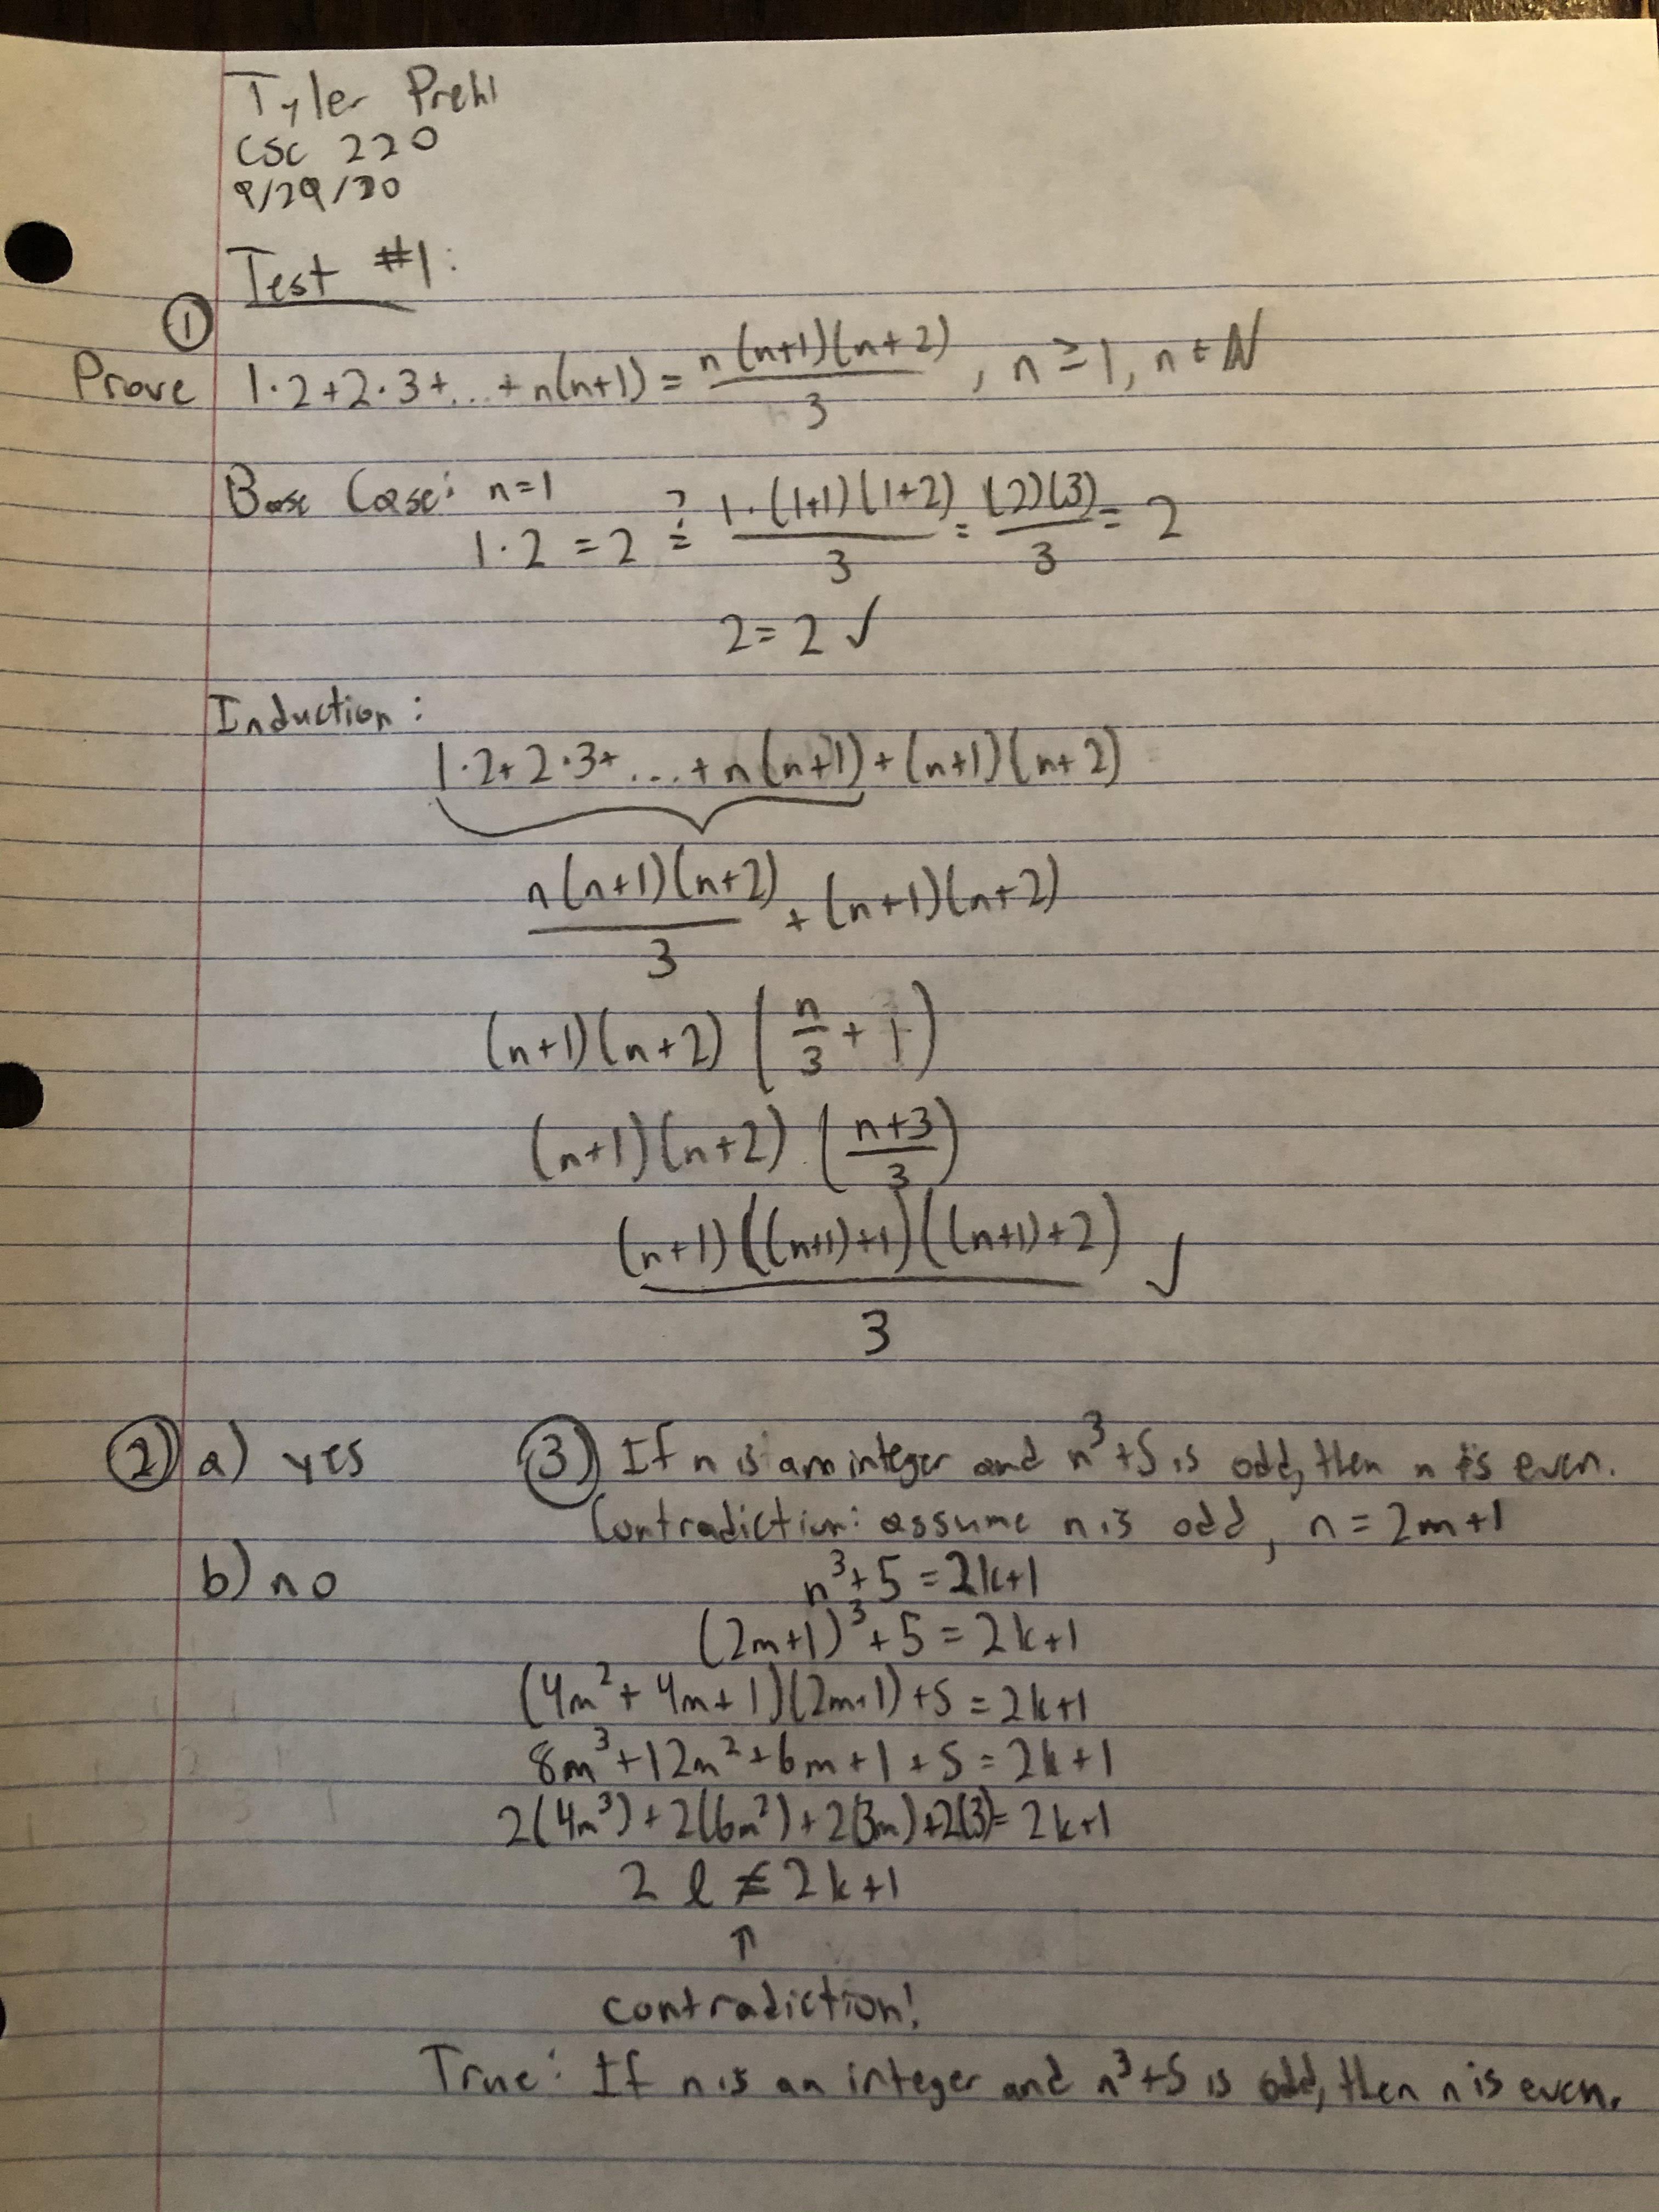 Tyler Prehl
CSC 220
9/29/20
Test #1:
①
Prove 1·2+2·3+...+n(n+1) = n(n+1)(n+2)/3, n≥1, n∈ℕ
Base Case: n=1
1·2 = 2 ≟ 1·(1+1)(1+2)/3 = (2)(3)/3 = 2
2=2 ✓
Induction:
1·2+2·3+...+n(n+1)+(n+1)(n+2)
n(n+1)(n+2)/3 + (n+1)(n+2)
(n+1)(n+2)(n/3 + 1)
(n+1)(n+2)((n+3)/3)
(n+1)((n+1)+1)((n+1)+2)/3 ✓
② a) yes
b) no
③ If n is an integer and n³+5 is odd, then n is even.
Contradiction: assume n is odd, n=2m+1
n³+5=2k+1
(2m+1)³+5=2k+1
(4m²+4m+1)(2m+1)+5=2k+1
8m³+12m²+6m+1+5=2k+1
2(4m³)+2(6m²)+2(3m)+2(3)=2k+1
2ℓ≠2k+1
↑
contradiction!
True: If n is an integer and n³+5 is odd, then n is even.